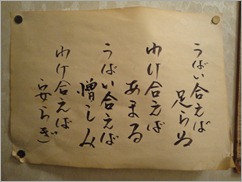 うばい合えば
足らぬ
わけ合えば
あまる
うばい合えば
憎しみ
わけ合えば
安らぎ